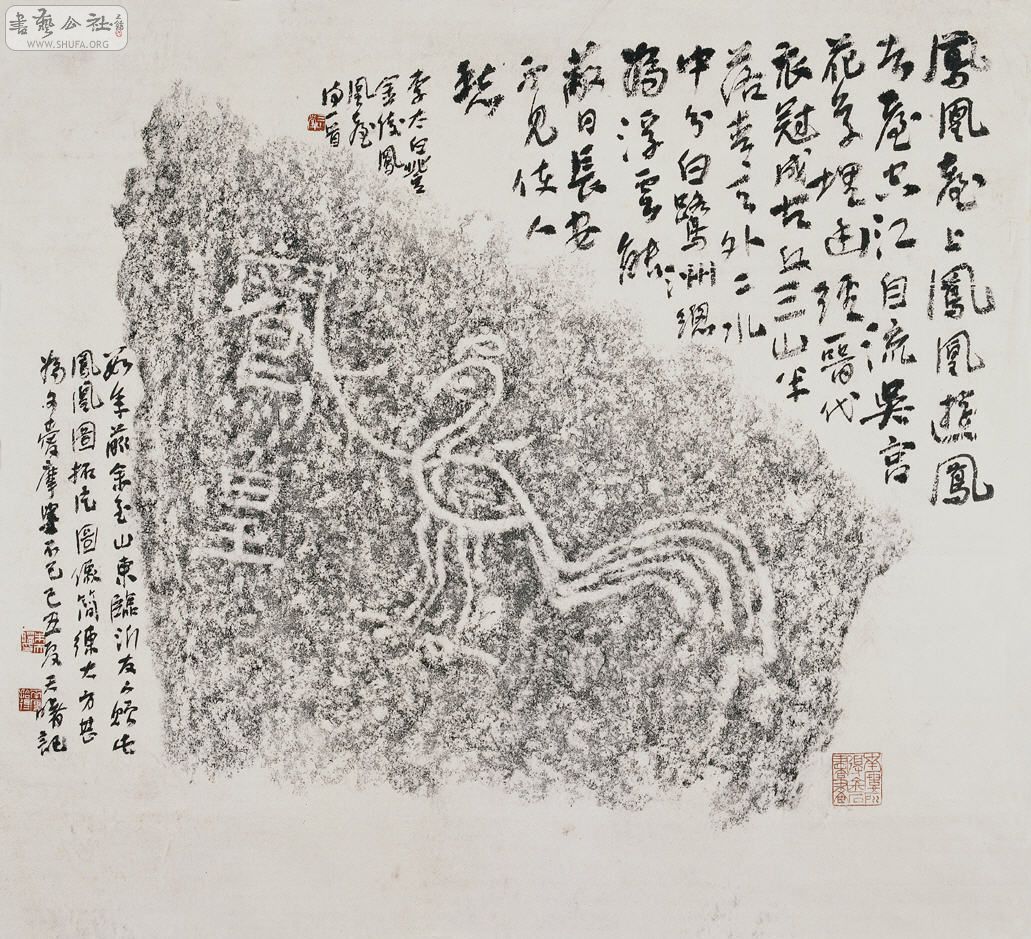 書藝公社
WWW.SHUFA.ORG
鳳凰臺上鳳凰遊鳳
去臺空江自流吳宮
花草埋幽徑晉代
衣冠成古丘三山半
落青天外二水
中分白鷺洲總
為浮雲能
蔽日長安
不見使人
愁
李太白登
金陵鳳
凰臺
詩一首
鳳皇
數年前余至山東臨沂友人贈此
鳳凰圖拓片圖像簡練大方甚
為可愛摩挲不已己丑夏天曙記